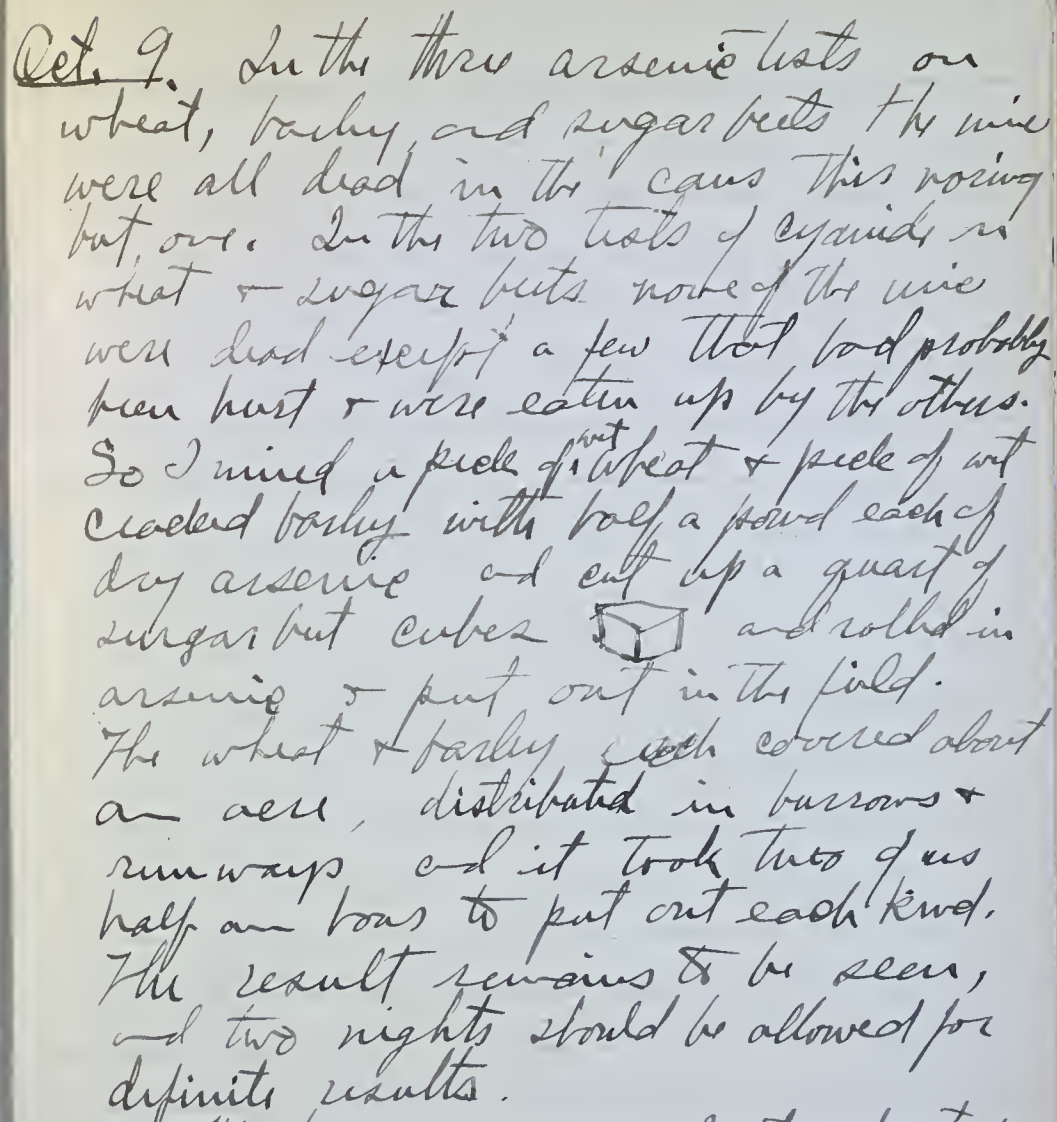 Oct. 9. In the three arsenic tests on
wheat, barley, and sugar beets the mice
were all dead in the cans this moring
but one. In the two tests of cyanide in
wheat + sugar beets none of the mice
were dead except a few that had probably
been hurt + were eaten up by the others.
So I mixed a peck of wet wheat + peck of wet
cracked barley with half a pound each of
dry arsenic and cut up a quart of
surgar beet cubes and rolled in
arsenic + put out in the field.
The wheat + barley each covered about
an acre, distributed in burrows +
runways and it took two of us
half an hour to put out each kind.
The result remains to be seen,
and two nights should be allowed for
definite results.